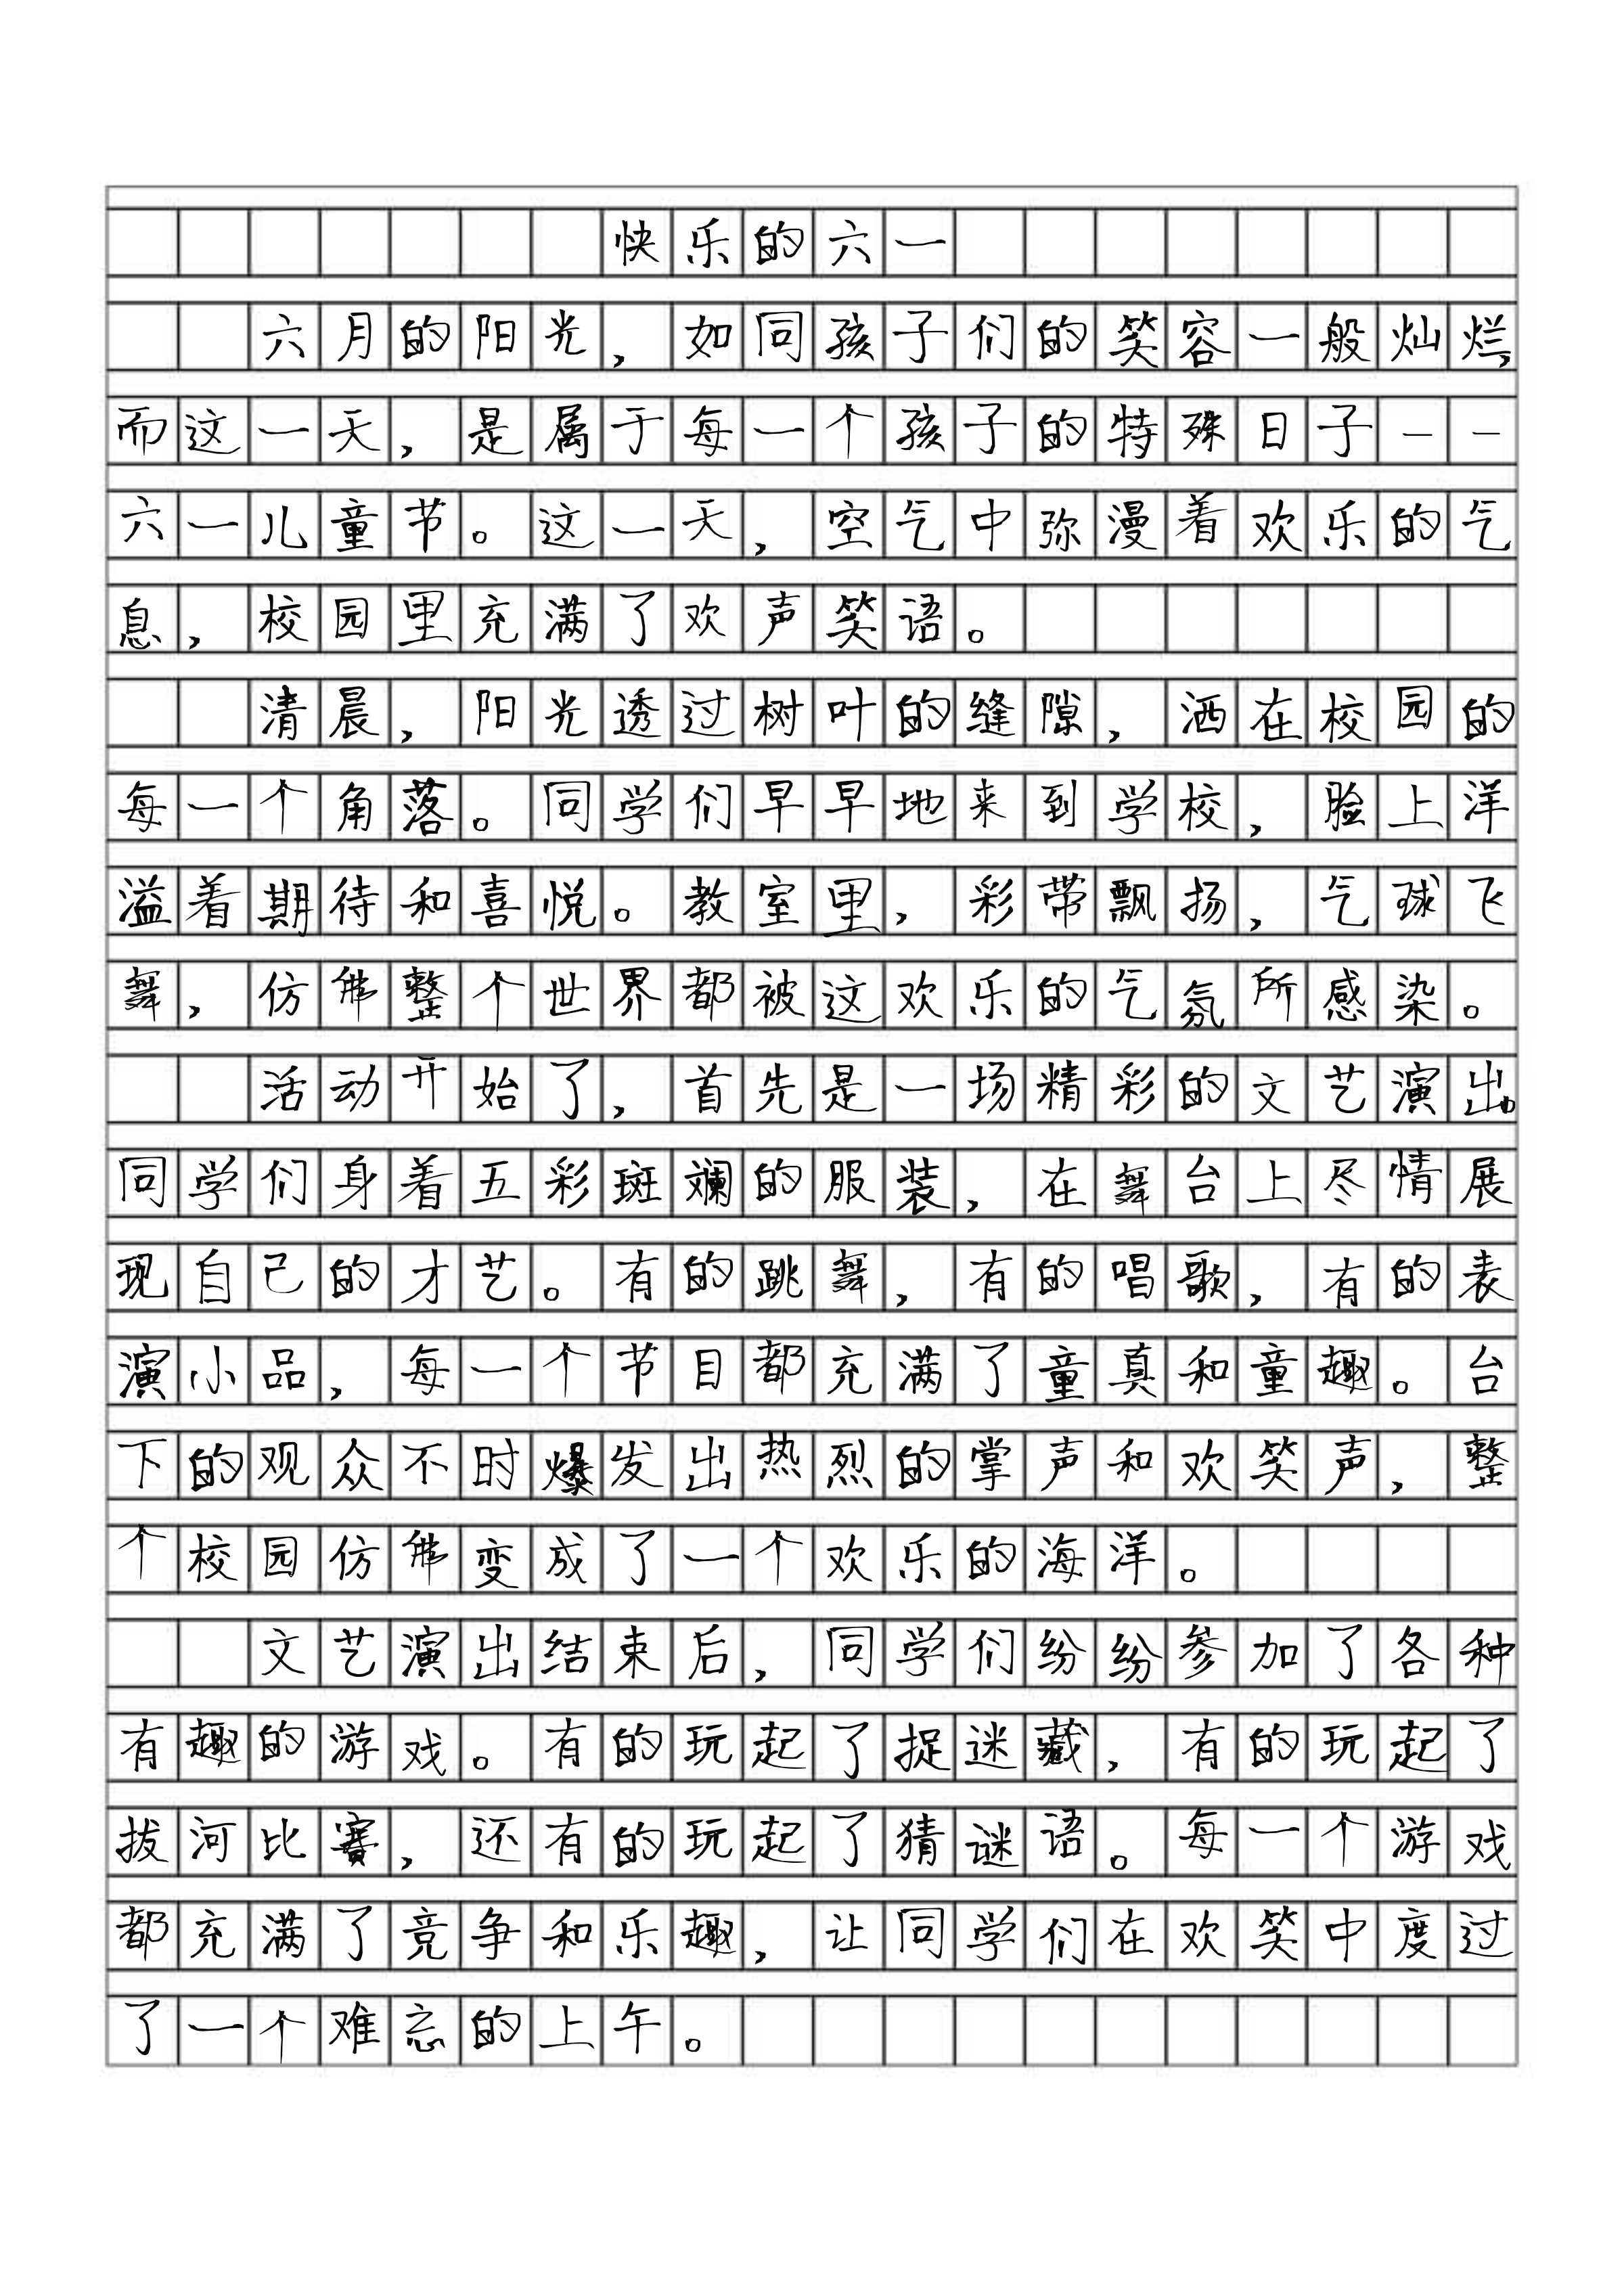 快乐的六一
六月的阳光，如同孩子们的笑容一般灿烂，
而这一天，是属于每一个孩子的特殊日子——
六一儿童节。这一天，空气中弥漫着欢乐的气
息，校园里充满了欢声笑语。
清晨，阳光透过树叶的缝隙，洒在校园的
每一个角落。同学们早早地来到学校，脸上洋
溢着期待和喜悦。教室里，彩带飘扬，气球飞
舞，仿佛整个世界都被这欢乐的气氛所感染。
活动开始了，首先是一场精彩的文艺演出。
同学们身着五彩斑斓的服装，在舞台上尽情展
现自己的才艺。有的跳舞，有的唱歌，有的表
演小品，每一个节目都充满了童真和童趣。台
下的观众不时爆发出热烈的掌声和欢笑声，整
个校园仿佛变成了一个欢乐的海洋。
文艺演出结束后，同学们纷纷参加了各种
有趣的游戏。有的玩起了捉迷藏，有的玩起了
拔河比赛，还有的玩起了猜谜语。每一个游戏
都充满了竞争和乐趣，让同学们在欢笑中度过
了一个难忘的上午。